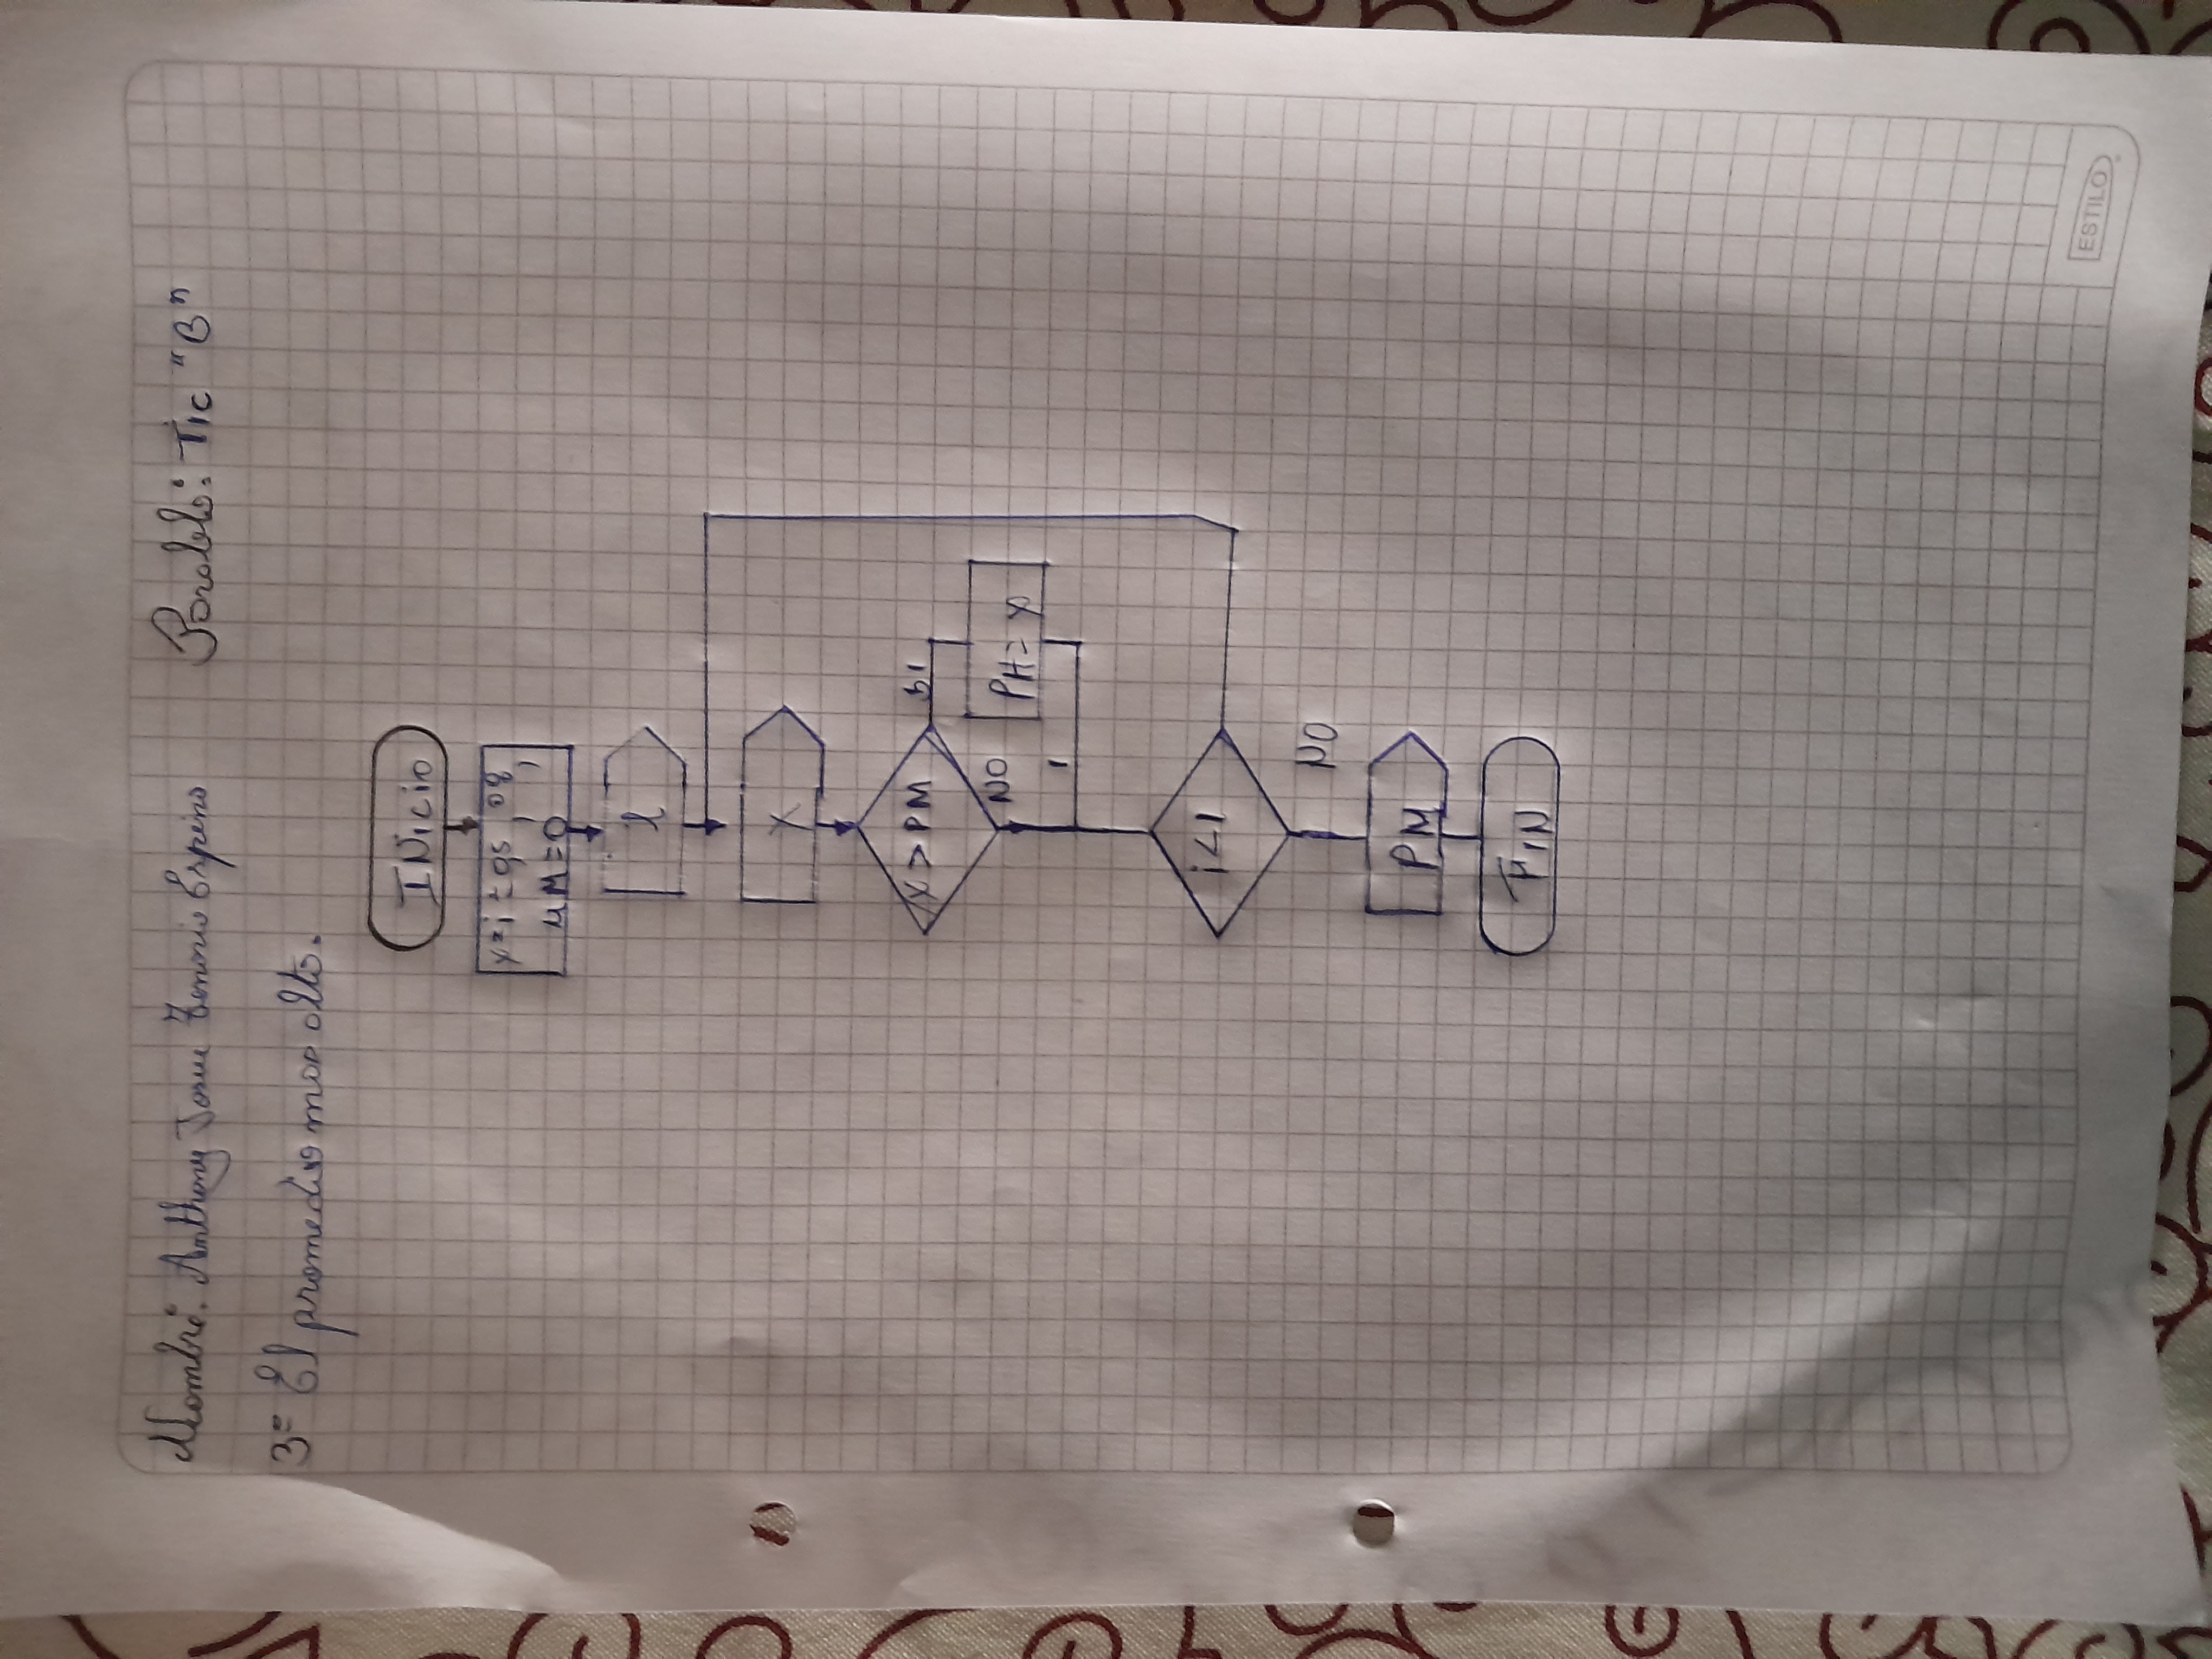 Nombre: Anthony Josue Tenorio Espino Paralelo: Tic "B"
3= El promedio mas alto.
INicio
x=i=
MM=0
l
X
X > PM
SI
NO
PM= X
i<1
NO
PM
FIN
ESTILO